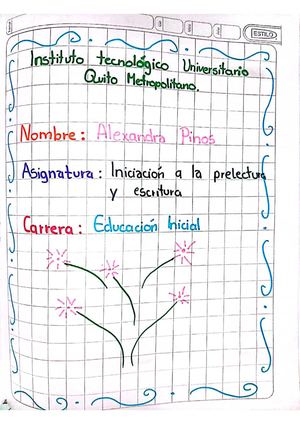 ESTILO
Instituto tecnológico Universitario
Quito Metropolitano.
Nombre: Alexandra Pinos
Asignatura: Iniciación a la prelectura
y escritura
Carrera: Educación Inicial